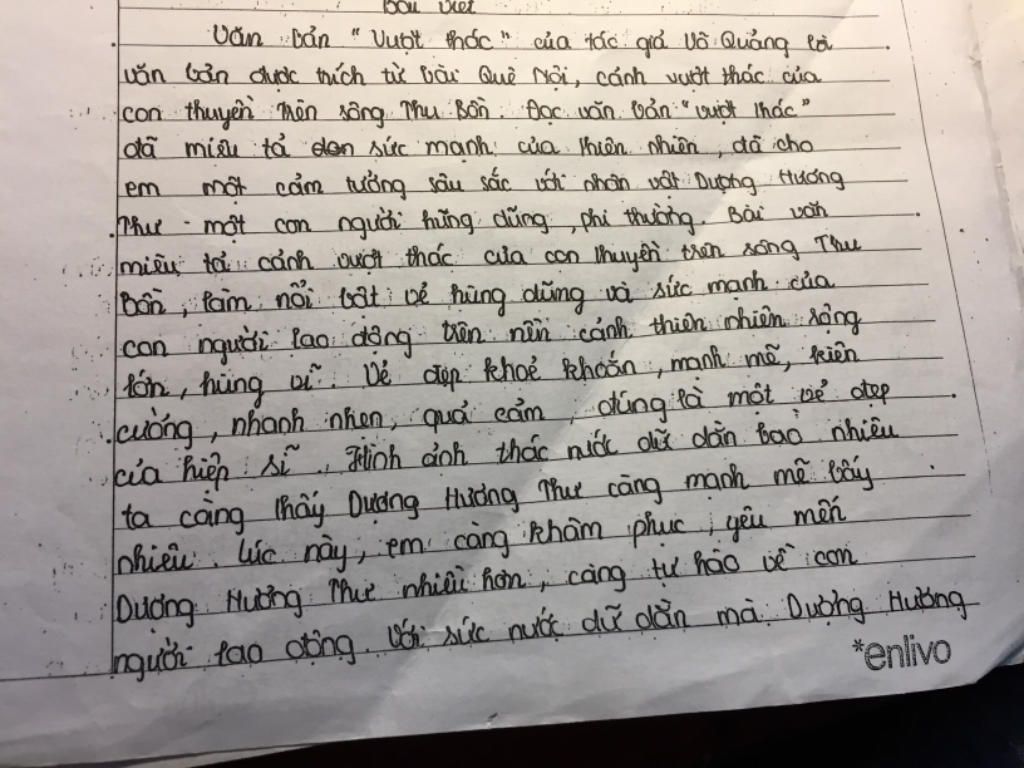 Bài viết
Văn bản "Vượt thác" của tác giả Võ Quảng là
văn bản được trích từ bài Quê Nội, cảnh vượt thác của
con thuyền trên sông Thu Bồn. Đọc văn bản "vượt thác"
đã miêu tả sức mạnh của thiên nhiên, đã cho
em một cảm tưởng sâu sắc với nhân vật Dượng Hương
Thư - một con người hùng dũng, phi thường. Bài văn
miêu tả cảnh vượt thác của con thuyền trên sông Thu
Bồn, làm nổi bật vẻ hùng dũng và sức mạnh của
con người lao động trên nền cảnh thiên nhiên rộng
lớn, hùng vĩ. Vẻ đẹp khoẻ khoắn, mạnh mẽ, kiên
cường, nhanh nhẹn, quả cảm, đúng là một vẻ đẹp
của hiệp sĩ. Hình ảnh thác nước dữ dằn bao nhiêu
ta càng thấy Dượng Hương Thư càng mạnh mẽ bấy
nhiêu. Lúc này, em càng khâm phục, yêu mến
Dượng Hương Thư nhiều hơn, càng tự hào về con
người lao động. Với sức nước dữ dằn mà Dượng Hương
*enlivo